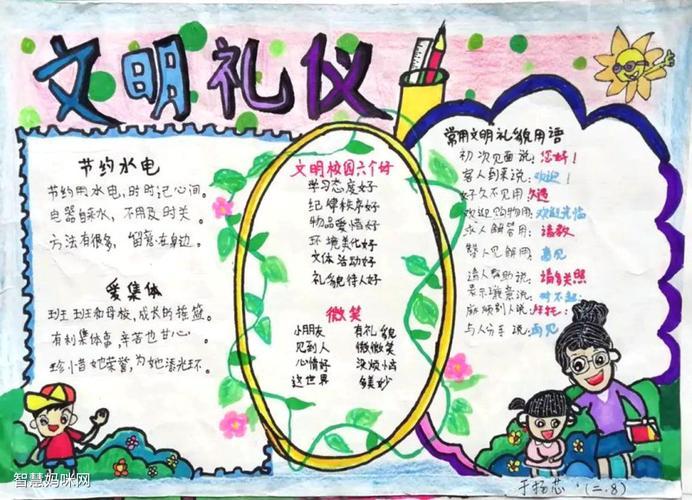 文明礼仪
节约水电
节约用水电,时时记心间。
电器自来水,不用及时关。
方法有很多,留意在身边。
爱集体
班班和母校,成长的摇篮。
有利集体事,辛苦也甘心。
珍惜她荣誉,为她添光环。
文明校园六个好
学习态度好
纪律秩序好
物品爱惜好
环境美化好
文体活动好
礼貌待人好
微笑
小朋友 有礼貌
见到人 微微笑
心情好 没烦恼
这世界 多美妙
常用文明礼貌用语
初次见面说:您好!
客人到来说:欢迎!
好久不见用久违
欢迎购物用:欢迎光临
求人解答用:请教
请人帮助说:请多关照
表示歉意说:对不起!
麻烦别人说:拜托!
与人分手说:再见
(二.8)
智慧妈咪网